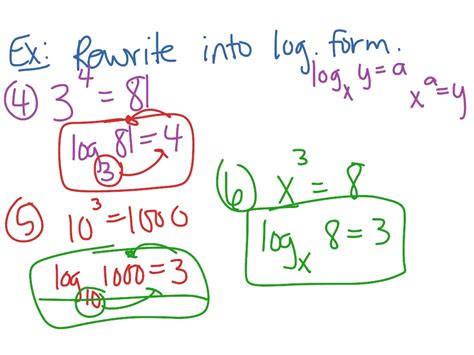 Ex: Rewrite into log. form.
log_x y = a
x^a = y
④ 3^4 = 81
log_3 81 = 4
⑤ 10^3 = 1000
log_10 1000 = 3
⑥ x^3 = 8
log_x 8 = 3